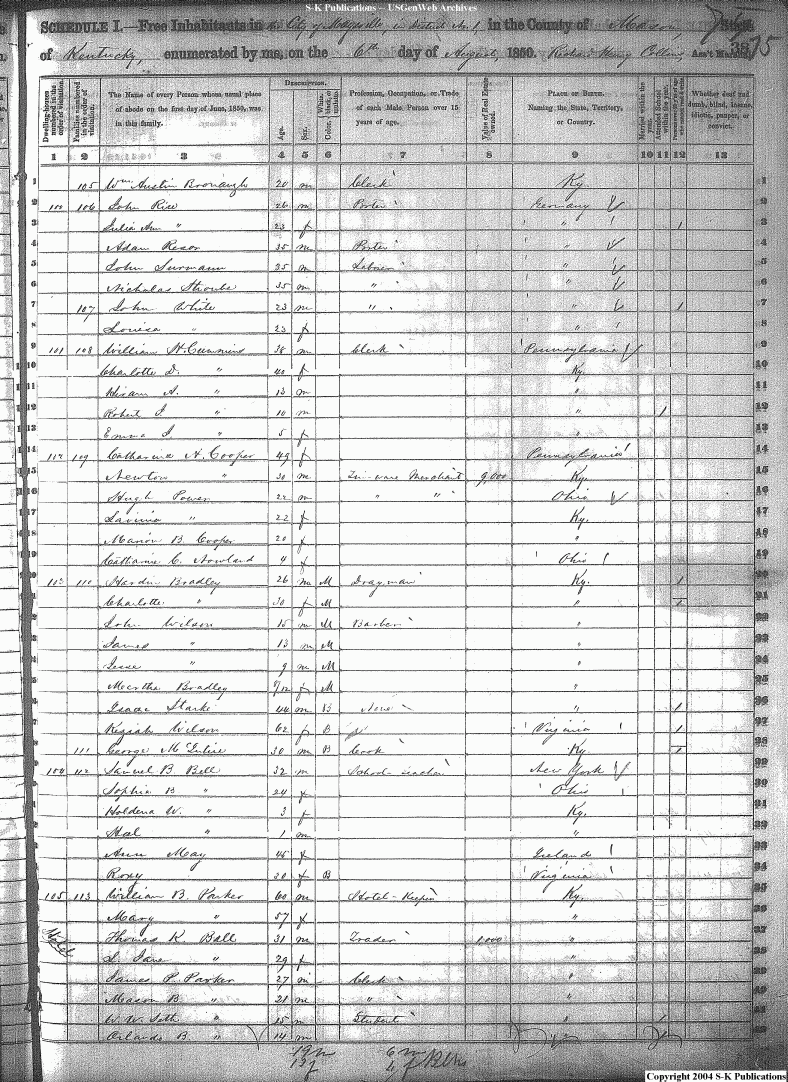 S-K Publications – USGenWeb Archives
SCHEDULE I.—Free Inhabitants in the City of Maysville, in District No. 1, in the County of Mason,
of Kentucky, enumerated by me, on the 6th day of August, 1850. Richard Henry Collins, Ass't Marshal
Dwelling-houses numbered in the order of visitation.
Families numbered in the order of visitation.
The Name of every Person whose usual place of abode on the first day of June, 1850, was in this family.
DESCRIPTION.
Age.
Sex.
Color
Profession, Occupation, or Trade of each Male Person over 15 years of age.
Value of Real Estate owned.
PLACE OF BIRTH. Naming the State, Territory, or Country.
Married within the year.
Attended School within the year.
Whether deaf and dumb, blind, insane, idiotic, pauper, or convict.
1 2 3 4 5 6 7 8 9 10 11 12 13
1 105 Wm Austin Boonaugh 20 m Clerk Ky. 1
2 106 John Rice 26 m Porter Germany 2
3 Julia Ann " 23 f " 1 3
4 Adam Resor 35 m Porter " 4
5 John Surmann 25 m Laborer " 5
6 Nicholas Stroube 35 m " " 6
7 107 John White 23 m " " 1 7
8 Louisa " 23 f " 8
9 101 108 William H. Cummins 38 m Clerk Pennsylvania 9
10 Charlotte D. " 40 f Ky. 10
11 Hiram A. " 13 m " 11
12 Robert J. " 10 m " 1 12
13 Emma J. " 5 f " 13
14 102 109 Catharina A. Cooper 49 f Pennsylvania 14
15 Newton " 30 m Tin-ware Merchant 9,000 Ky. 15
16 Hugh Power 22 m " " Ohio 16
17 Lavinia " 22 f Ky. 17
18 Marion B. Cooper 20 f " 18
19 Catharine C. Nowland 4 f Ohio 19
20 103 110 Hardin Bradley 26 m M Drayman Ky. 1 20
21 Charlotte " 30 f M " 1 21
22 John Wilson 15 m M Barber " 22
23 James " 13 m M " 23
24 Jesse " 9 m M " 24
25 Martha Bradley 7/12 f M " 25
26 Isaac Stark 44 m B None " 1 26
27 Keziah Wilson 62 f B Virginia 1 27
28 111 George McIntire 30 m B Cook Ky. 1 28
29 104 112 Samuel B. Bell 32 m School teacher New York 29
30 Sophia B " 24 f Ohio 30
31 Holdena W. " 3 f Ky. 31
32 Hal " 1 m " 32
33 Ann May 45 f Ireland 33
34 Roxy 30 f B Virginia 34
35 105 113 William B. Parker 60 m Hotel-Keeper Ky. 35
36 Mary " 57 f " 36
37 Hotel Thomas K. Ball 31 m Trader 1,000 " 37
38 S. Jane " 29 f " 38
39 James P. Parker 27 m Clerk " 39
40 Mason B " 21 m " " 40
41 W. W. Seth " 15 m Student " 41
42 Orlando B. " 14 m 42
19 m 6 m
13 f 4 f Blks
Copyright 2004 S-K Publications